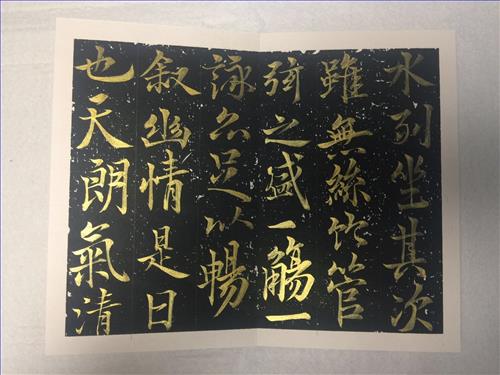 水列坐其次
雖無絲竹管
弦之盛一觴一
詠亦足以暢
叙幽情是日
也天朗氣清